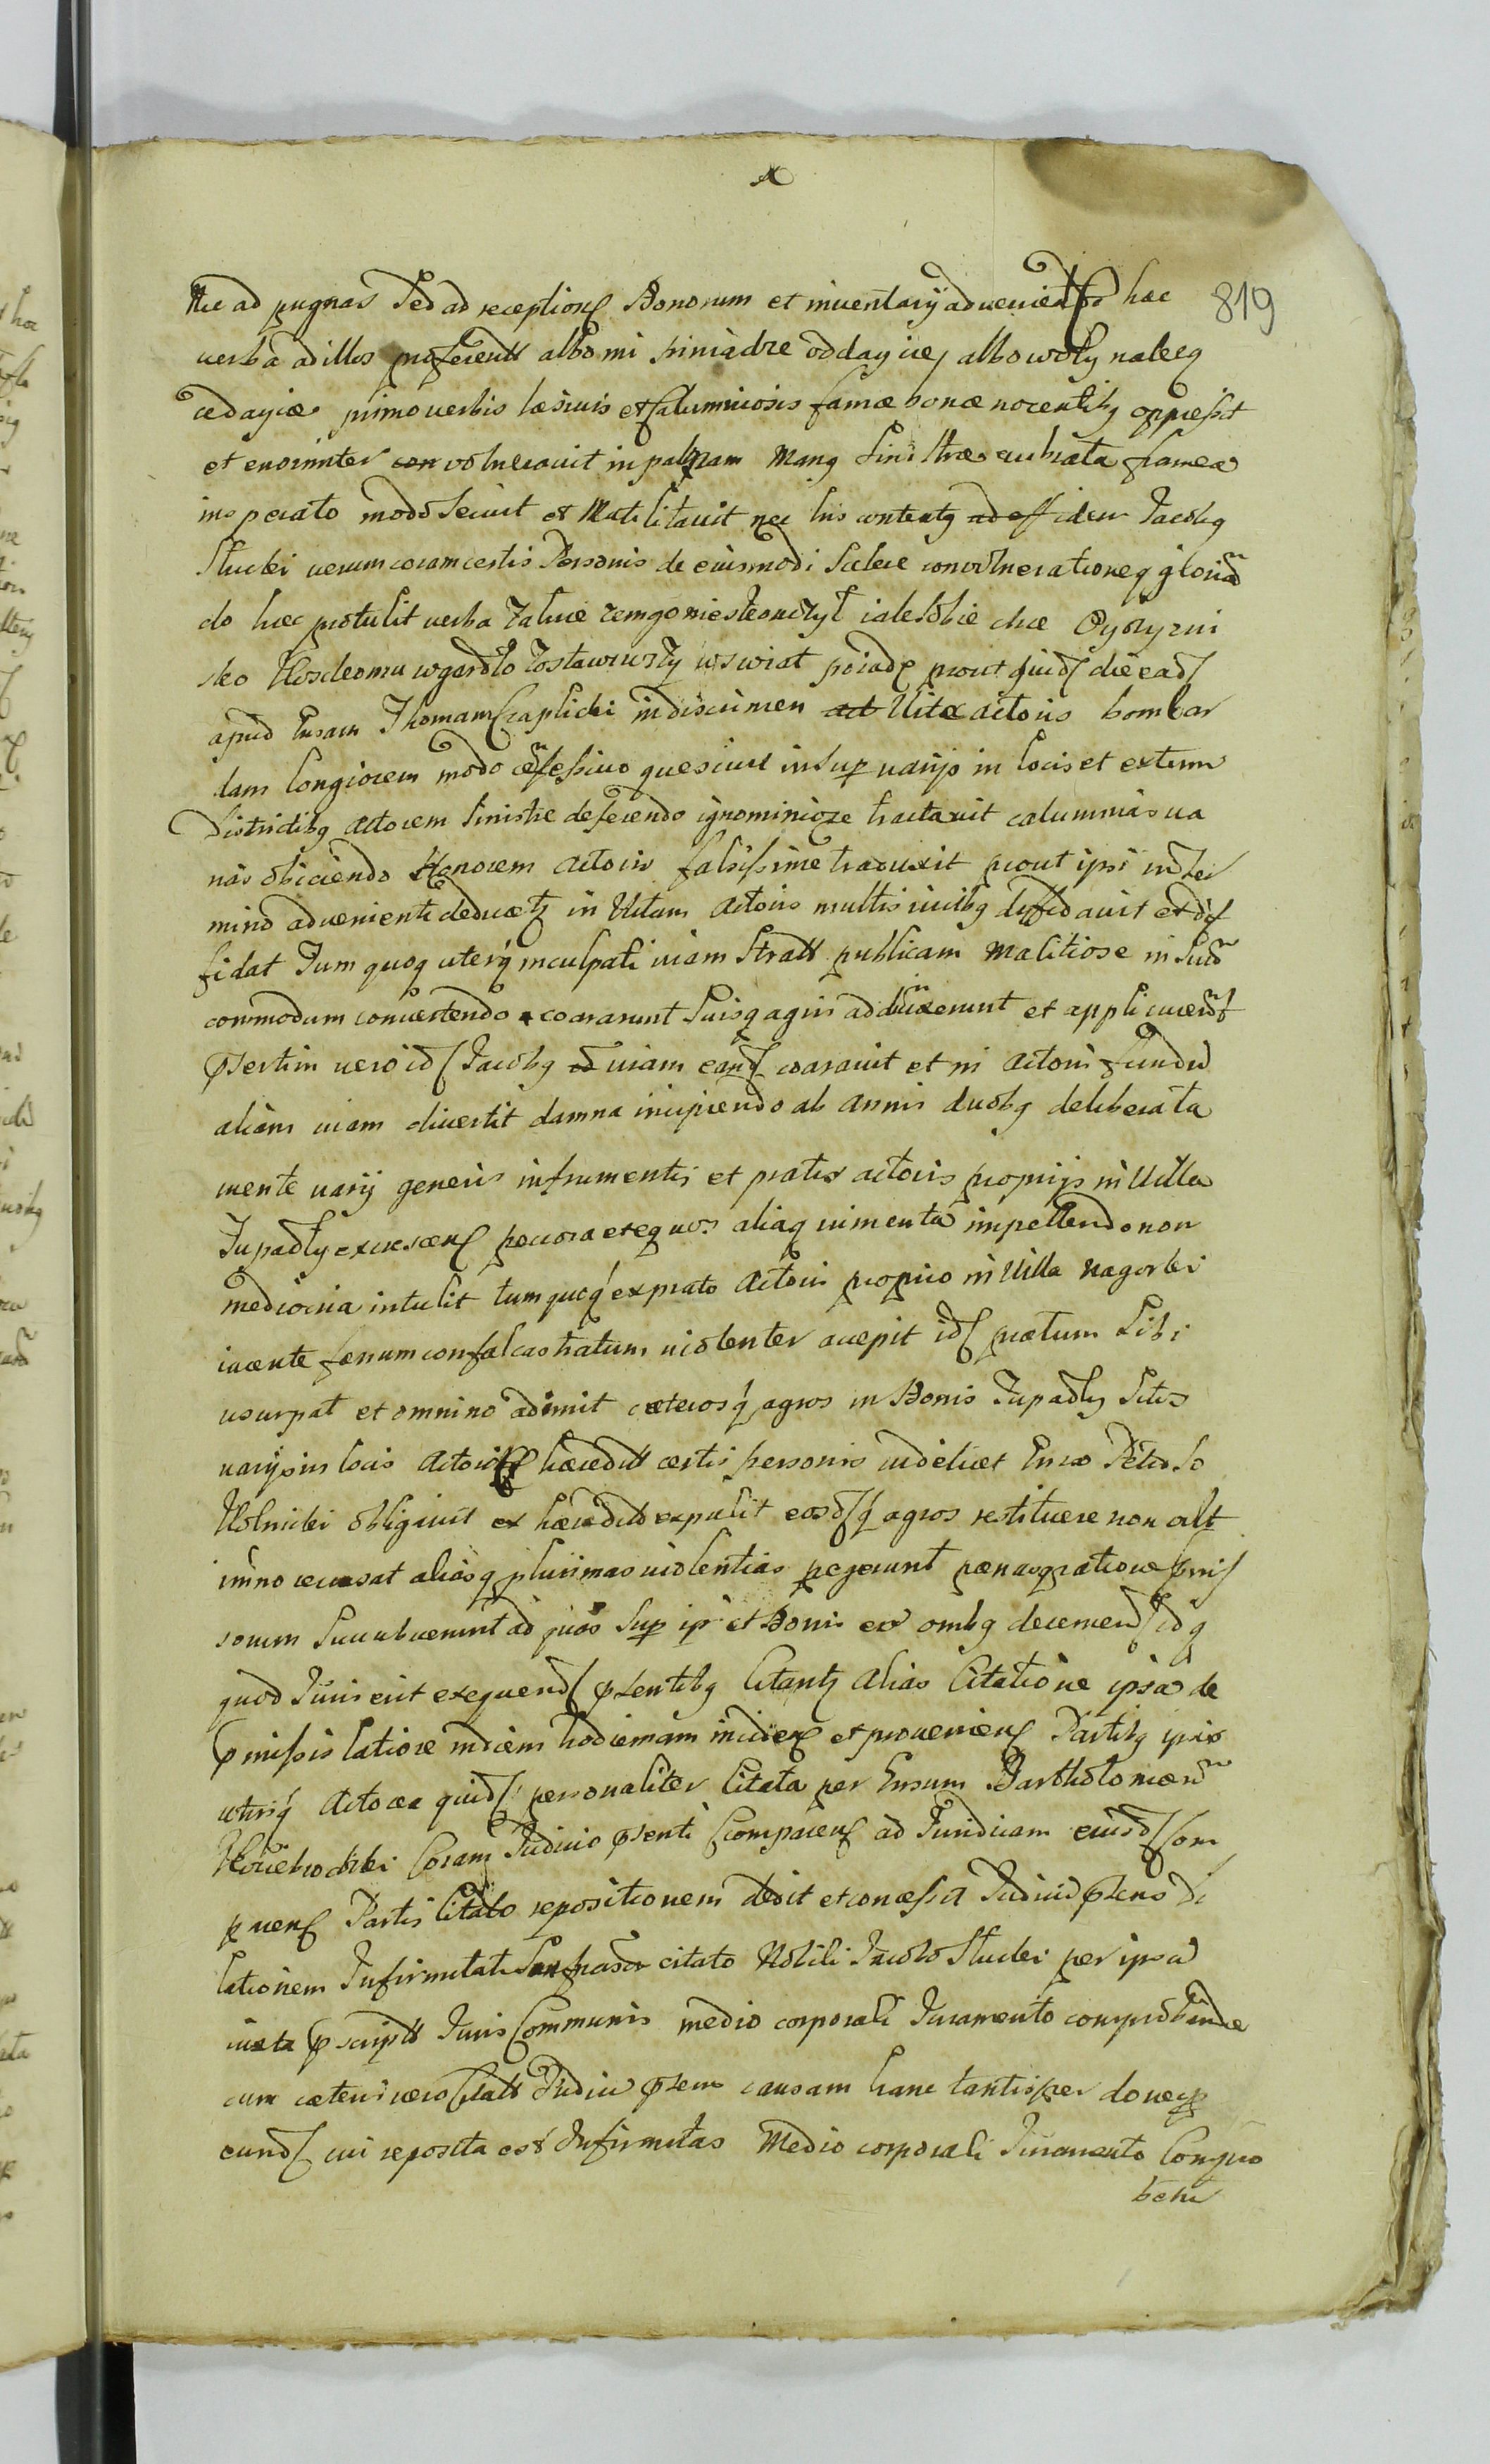 819
Nec ad pugnas sed ad reception Bonorum et inventarÿ advenien hac
verba ad illos proferendt albo mi piniądze odday cie, albo woły należą
ce dayice primo verbis læsivis et calumniosis famæ bonæ nocentibq oppressit
et enormiter convolneravit in palmam manq sinistræ evibrata framea
insperato modo secuit et Mutilitavit nec his contentq idem Jacobq
Słucki verum coram certis Personis de eiusmodi scelere convolnerationeq glorian
do hæc protulit verba żałuie żem go nie skonczył iale sobie chce Oyczyzni
sko
apud Gnsum Thomam Czaplicki in discrimen Vitæ actoris bombar
dam longiorem modo offessivo quesivit insup varÿs in locis et extum
districtibq actorem sinistre deferendo ignominioze tractavit calumnias va
nas obiciendo Honorem actoris falsissime traduxit prout ipsi in Ter
mino advenienti deducetq in Vitam actoris multis vicibq diffidavit et dif
fidat Tum quoq uterq inculpati viam Stratt publicam malitiose in suum
commodum convertendo coararunt suisq agris adduxerunt et applicuerunt
psertim vero id Jacobq viam eand coaravit et in actoris fundu
aliam viam divertit damna incipiendo ab annis duobq deliberata
mente varÿ generis in frumentis et pratis actoris proprÿs in Villa
Tupadły excrescen pecora et equos aliaq iumenta impellendo non
mediocria intulit tum quoq ex prato actoris proprio in Villa Nagorki
iacente fænum confalcastratum violenter accepit id pratum sibi
usurpat et omnino adimit cæterosq agros in Bonis Tupadły sitos
varÿs in locis actoris hæredit certis personis videlicet Gnso Petro So
kolnicki obligavit ex hæredit expulit eosdq agros restituere non vult
immo recusat aliasq plurimas violentias pegerunt pænasq ratione pmis
sorum succubuerunt ad quas sup ip et Bonis eor ombq decernend idq
quod Juris erit exequend psentibq Citantq alias Citatione ipsa de
pmissis latiore in diem hodiernam inciden et provenien Partibq ipsis
utrisq Actorea quid personaliter Citata per Gnsum Bartholomæum
Coram Judicio psenti Comparen ad Juridicam eiusd Com
paren Partis Citato repositionem dedit et concessit Judiciu psens di
lationem Infirmitatis citato Nobili Jacobo Słucki per ipsu
iuxta pscriptt Juris Communis medio corporali Juramento comprobandæ
cum cæteris vero Citatt Judiciu psens causam hanc tantisper donec p
eund cui reposita est Infirmitas Medio corporali Juramento Compro
betur